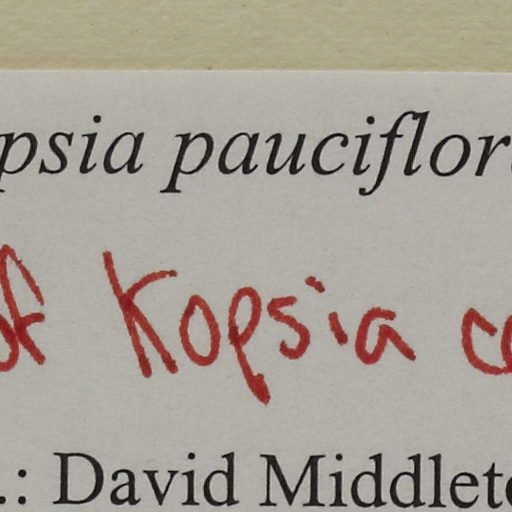 psia pauciflor
of Kopsia c
.: David Middlet